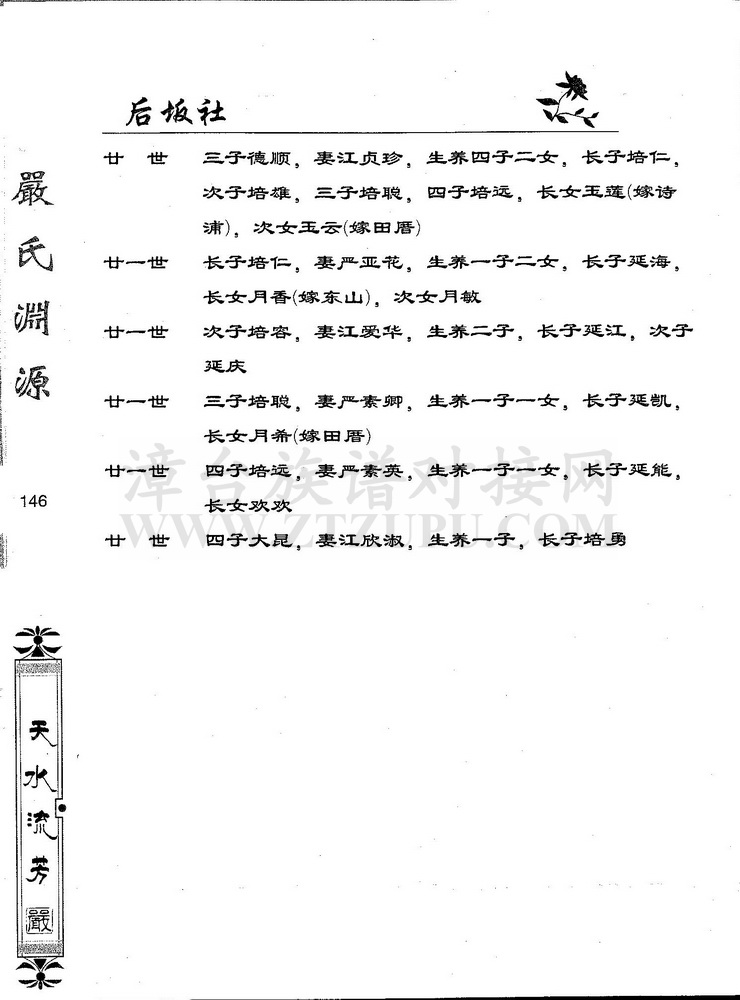 后坂社
廿 世 三子德顺，妻江贞珍，生养四子二女，长子培仁，
次子培雄，三子培聪，四子培远，长女玉莲(嫁诗
浦)，次女玉云(嫁田厝)
廿一世 长子培仁，妻严亚花，生养一子二女，长子延海，
长女月香(嫁东山)，次女月敏
廿一世 次子培容，妻江爱华，生养二子，长子延江，次子
延庆
廿一世 三子培聪，妻严素卿，生养一子一女，长子延凯，
长女月希(嫁田厝)
廿一世 四子培远，妻严素英，生养一子一女，长子延能，
长女欢欢
廿 世 四子大昆，妻江欣淑，生养一子，长子培勇
嚴氏淵源
146
天水流芳
嚴
漳台族谱对接网
WWW.ZTZUPU.COM